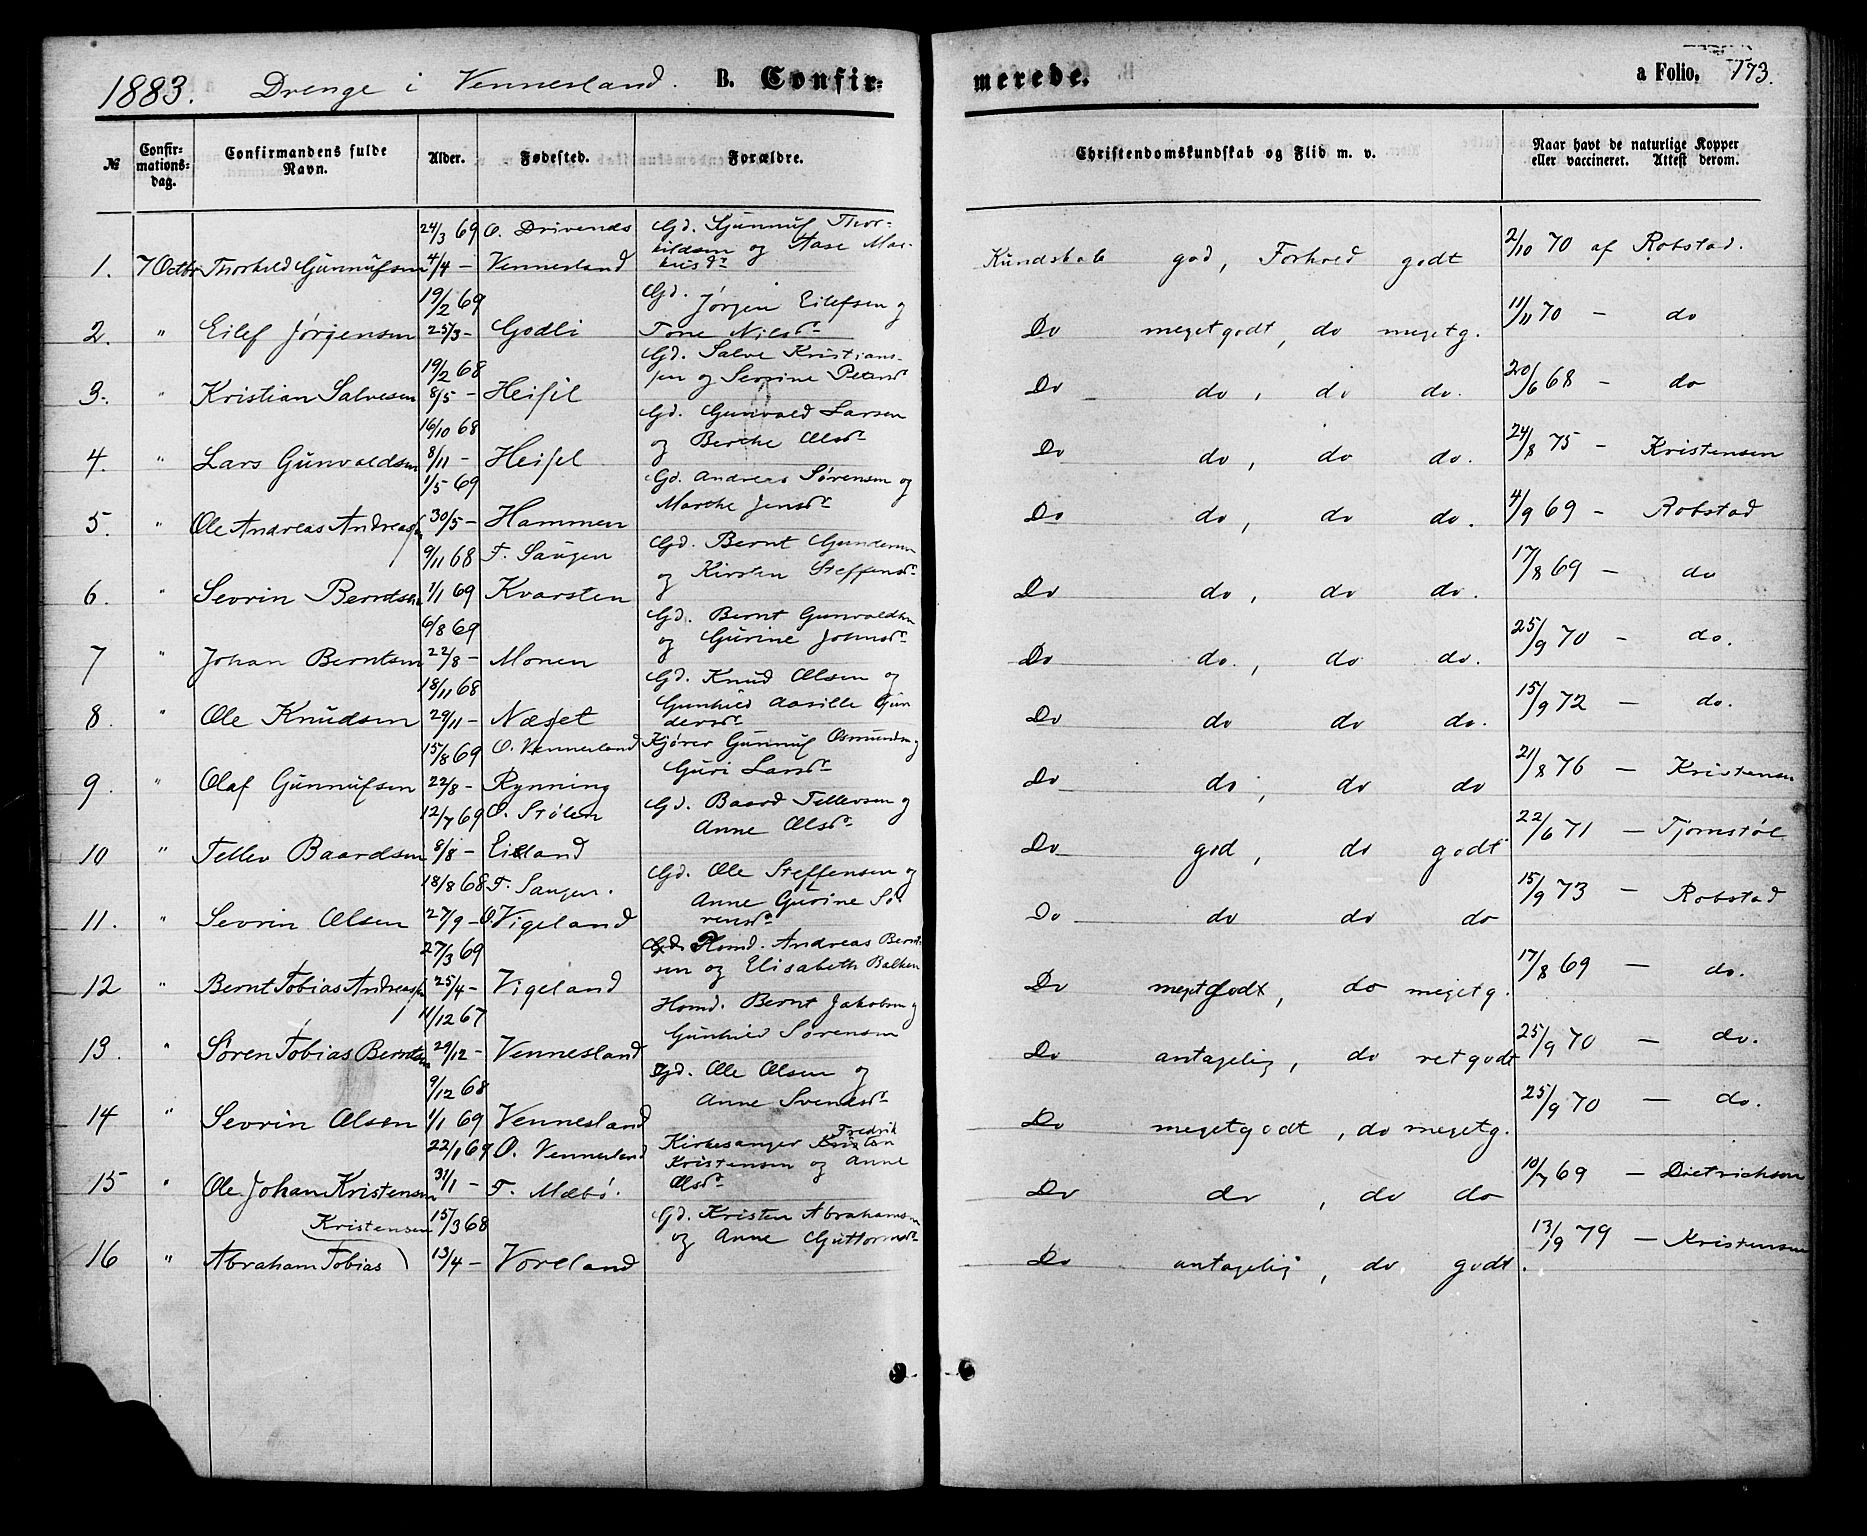 1883. Drenge i Vennesland. B. Confirmerede. a Folio. 173.
№ Confirmationsdag. Confirmandens fulde Navn. Alder. Fødested. Forældre. Christendomskundskab og Flid m. v. Naar havt de naturlige Kopper eller vaccineret. Attest derom.
24/3 69 O. Drivends Gd. Gunnuf Thor-
kildsen og Aase Mar-
1. 7 Octbr Thorkild Gunnufsen 4/4 - Vennesland kusdr Kundskab god, Forhold godt 2/10 70 af Robstad.
19/2 69 Gd. Jørgen Eilefsen og
2. " Eilef Jørgensen 25/3 - Godli Tone Nilsdr Do megetgodt, do megetg. 11/11 70 - do
19/2 68 Gd. Salve Kristians-
3. " Kristian Salvesen 8/5 - Heisel sen og Serine Pedersdr Do do, do do. 20/6 68 - do
16/10 68 Gd. Gunvald Larsen
4. " Lars Gunvaldsen 8/11 - Heisel og Berthe Olsdr Do do, do do. 24/8 75 - Kristensen
1/5 69 Gd. Andreas Sørensen og
5. " Ole Andreas Andreassen 30/5 - Hammen Marthe Jensdr Do do, do do. 4/9 69 - Robstad
9/11 68 F. Saugen Gd. Bernt Gundersen
6. " Sevrin Berntsen 1/1 69 Kvarsten og Kirsten Steffensdr Do do, do do. 17/8 69 - do
6/8 69 Gd. Bernt Gunvaldsen
7 " Johan Berntsen 22/8 - Monen og Gurine Johnsdr Do do, do do. 25/9 70 - do.
18/11 68 Gd. Knud Olsen og
Gunhild Aasille Gun
8. " Ole Knudsen 29/11 - Næsset dersdr Do do do do. 15/9 72 - do.
15/8 69 O. Vennesland Kjører Gunnuf Osmundsen og
9. " Olaf Gunnufsen 22/8 - Rynning Guri Larsdr Do do, do do 21/8 76 - Kristensen
12/7 69 O. Stølen Gd. Baard Tellevsen og
10 " Tellev Baardsen 8/8 - Eieland Anne Olsdr Do god, do godt 22/6 71 - Tjomstøl
18/8 68 F. Saugen. Gd. Ole Steffensen og
Anne Gurine Sø
11. " Sevrin Olsen 27/9 - O. Vigeland rensdr Do do do do 15/9 73 - Robstad
27/3 69 Homd. Andreas Bernt-
sen og Elisabeth Balken
12 " Bernt Tobias Andreassen 25/4 - Vigeland Do megetgodt, do megetg. 17/8 69 - do.
11/12 67 Homd. Bernt Jakobsen og
Gunhild Sørensen
13. " Søren Tobias Berntsen 29/12 - Vennesland Do antagelig, do retgodt 25/9 70 - do.
9/12 68 Gd. Ole Olsen og
Anne Svendsdr
14 " Sevrin Olsen 1/1 69 Vennesland Do megetgodt, do megetg. 25/9 70 - do.
22/1 69 O. Vennesland Kirkesanger Fredrik
Kristensen og Anne
15 " Ole Johan Kristensen 31/1 - F. Mæbø. Olsdr Do do, do do 10/7 69 - Dietrichson
Kristensen 15/3 68 Gd. Kristen Abrahamsen
og Anne Guttormsdr
16 " Abraham Tobias 13/4 - Voreland Do antagelig, do godt. 13/9 79 - Kristensen